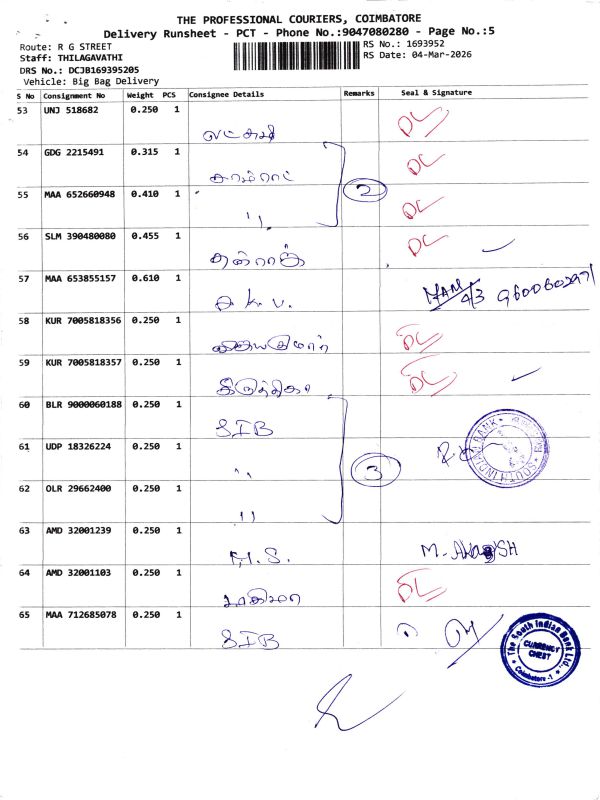 THE PROFESSIONAL COURIERS, COIMBATORE
Delivery Runsheet - PCT - Phone No.:9047080280 - Page No.:5
Route: R G STREET
RS No.: 1693952
Staff: THILAGAVATHI
RS Date: 04-Mar-2026
DRS No.: DCJB169395205
Vehicle: Big Bag Delivery
S No Consignment No Weight PCS Consignee Details Remarks Seal & Signature
53 UNJ 518682 0.250 1
DL
54 GDG 2215491 0.315 1
DL
2
55 MAA 652660948 0.410 1
" DL
56 SLM 390480080 0.455 1
DL
57 MAA 653855157 0.610 1
4/3
58 KUR 7005818356 0.250 1
DL
59 KUR 7005818357 0.250 1
DL
60 BLR 9000060188 0.250 1
SIB
61 UDP 18326224 0.250 1
"
3
SOUTH INDIAN BANK
62 OLR 29662400 0.250 1
"
63 AMD 32001239 0.250 1
M.S.
64 AMD 32001103 0.250 1
DL
65 MAA 712685078 0.250 1
SIB
The South Indian Bank Ltd.
CURRENCY
CHEST
Coimbatore -1